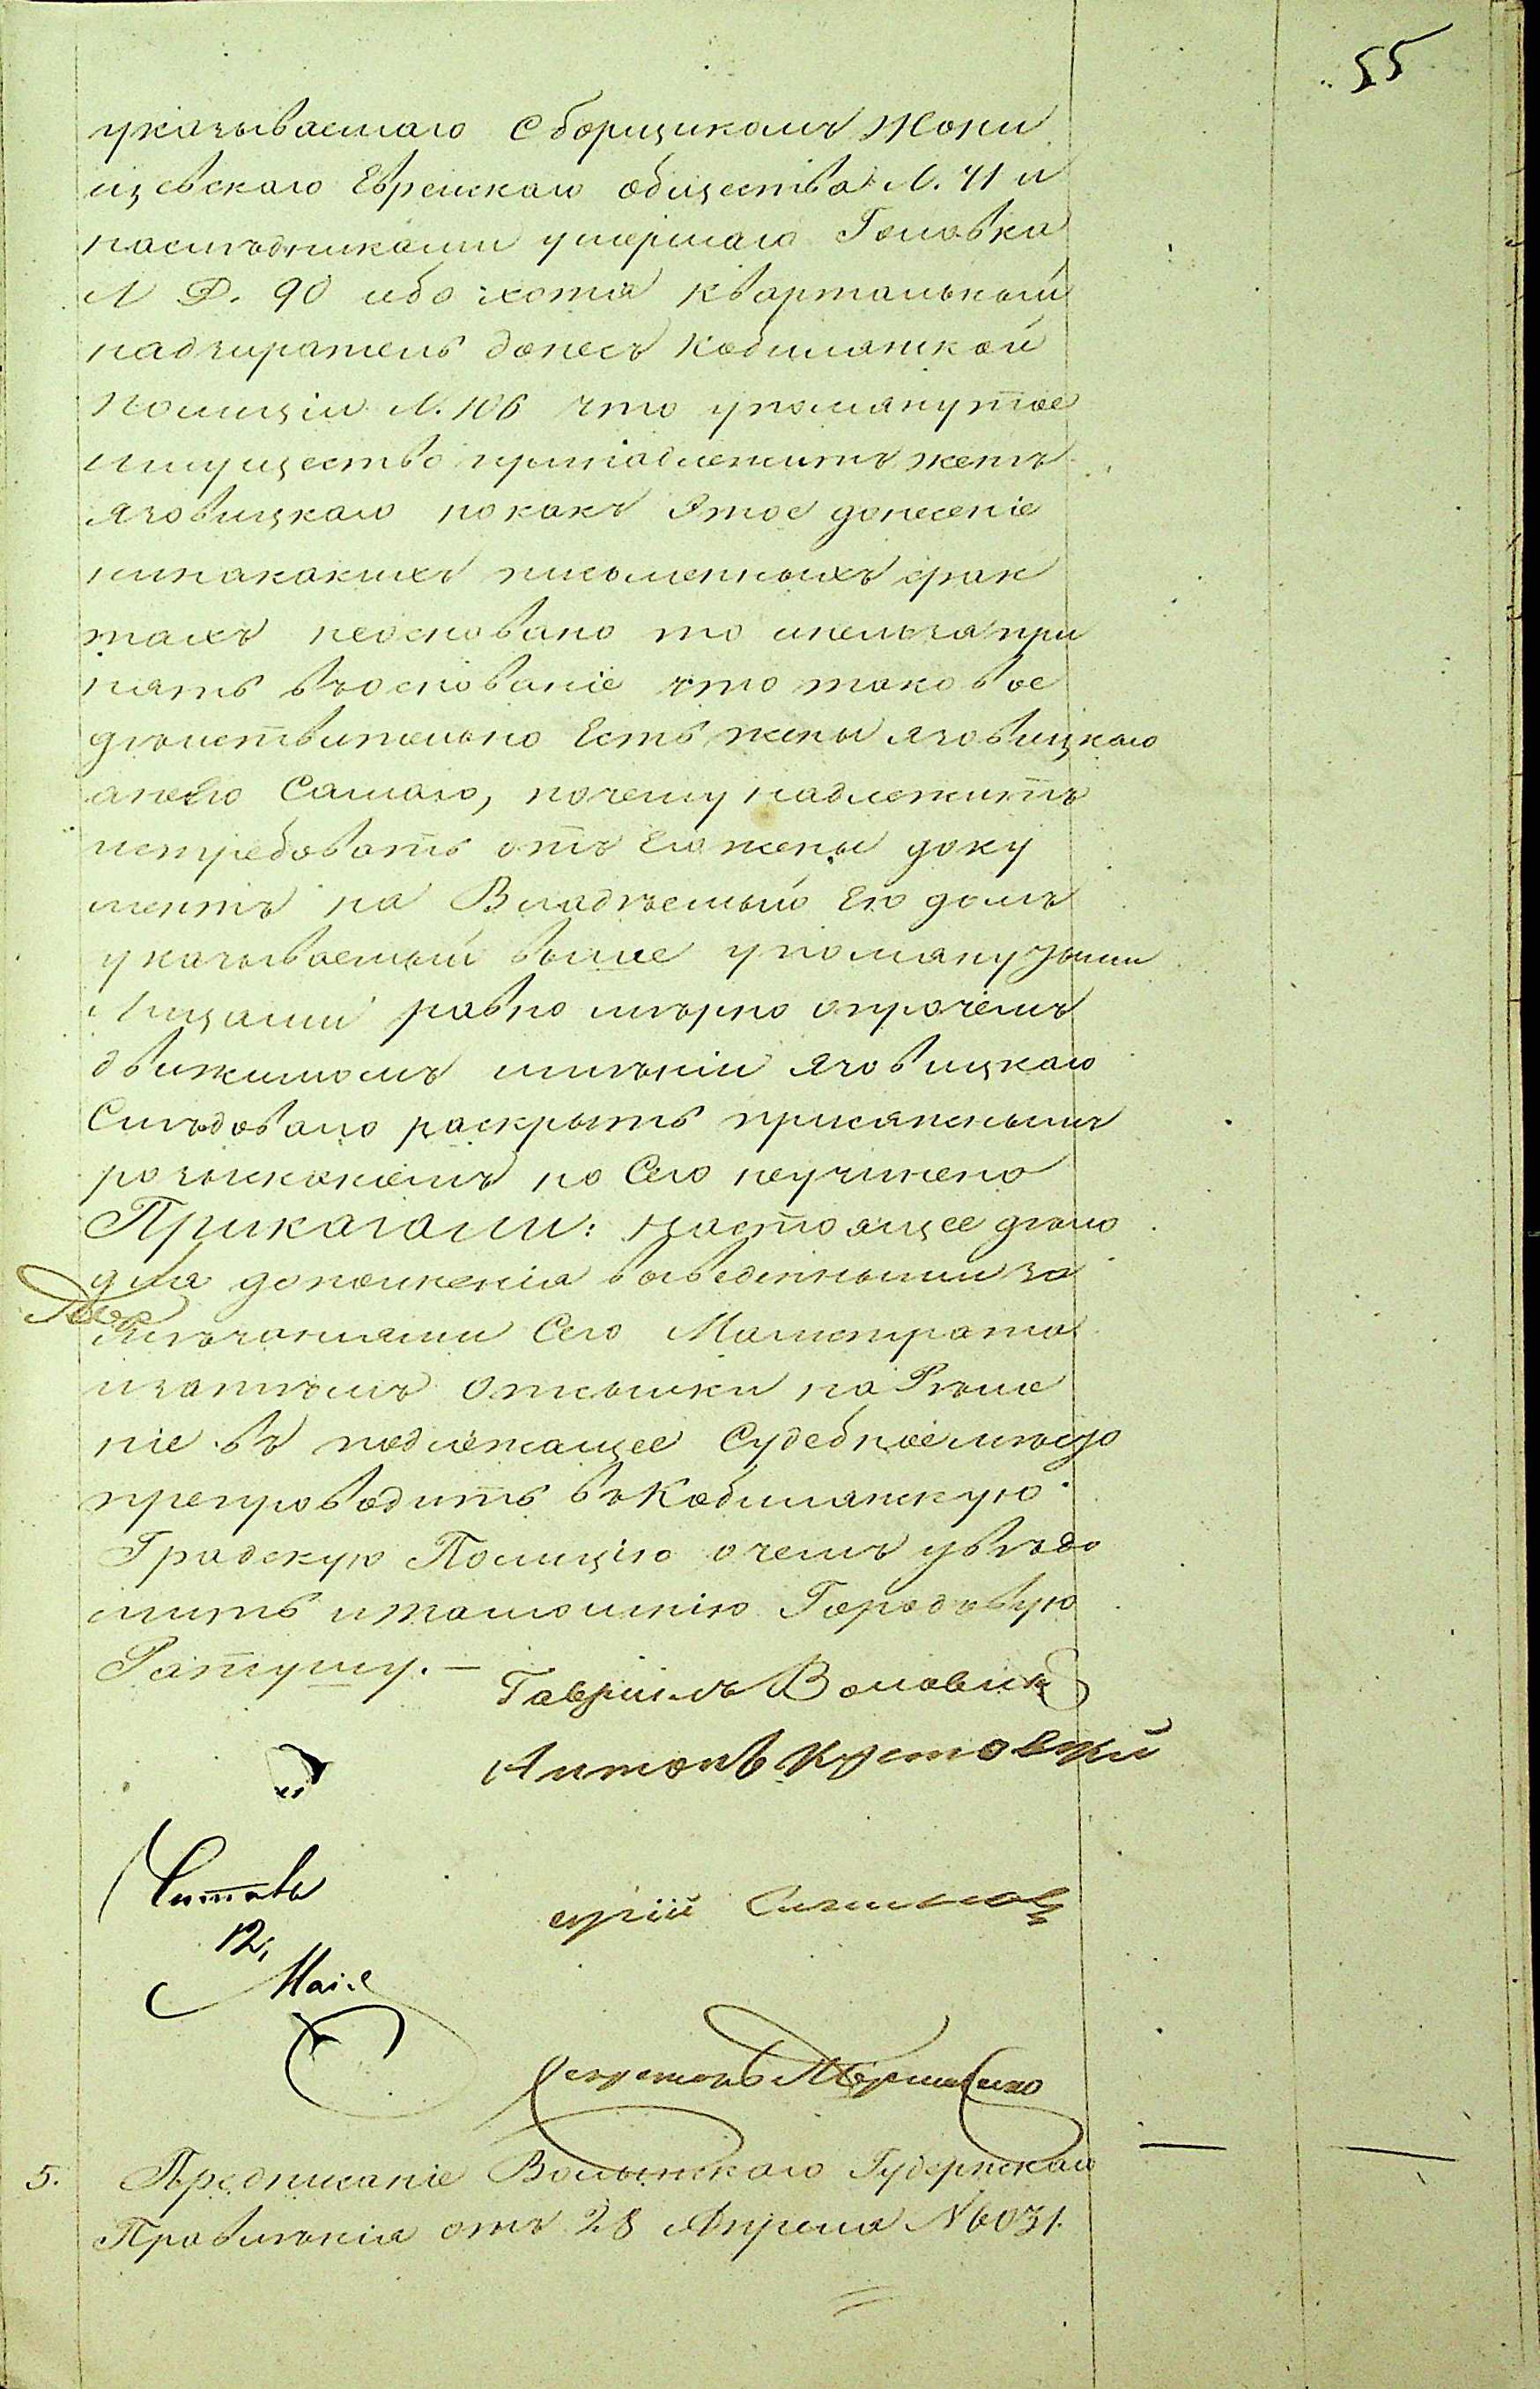 55
указываемаго сборщикомъ Кони
щевскаго Еврейскаго общества N. 41 и
наслѣдниками умершаго Головка
N Д. 90 ибо хотя квартальный
надзиратель донесъ Кобилянской
Полиціи N. 106 что упомянутое
имущество принадлежитъ женѣ
Язовицкаго но какъ Этое донесеніе
нинакакихъ письменныхъ срак
тахъ неосновано то инельзя при
нять въоснованіе что таковое
дѣйствительно Есть жены Язовицкаго
анеего Самаго, почему надлежитъ
истребовать отъ Его жены доку
ментъ на Владѣемый Ею домъ
указываемый выше упомянутыми
Лицами равно мѣрно опрочемъ
движимомъ имѣніи Язовицкаго
Слѣдовало раскрыть присяжнымъ
розысканіемъ но Сего неучинено
Приказали: настоящее дѣло
для дополненія выведенными за
мѣчаніями Сего Магистрата
изатѣмъ отсылки на Рѣше
ніе въ подлежащее Судебное мѣсто
препроводить въКобилянскую
Градскую Полицію очемъ увѣдо
мить итамошнію Городовую
Ратушу. —
Гавріилъ Воловик
Антонъ Кустовский
Читалъ
12,
Маія
5. Предписаніе Волынскаго Губернскаго
Правленія отъ 28 Апреля N 6031.